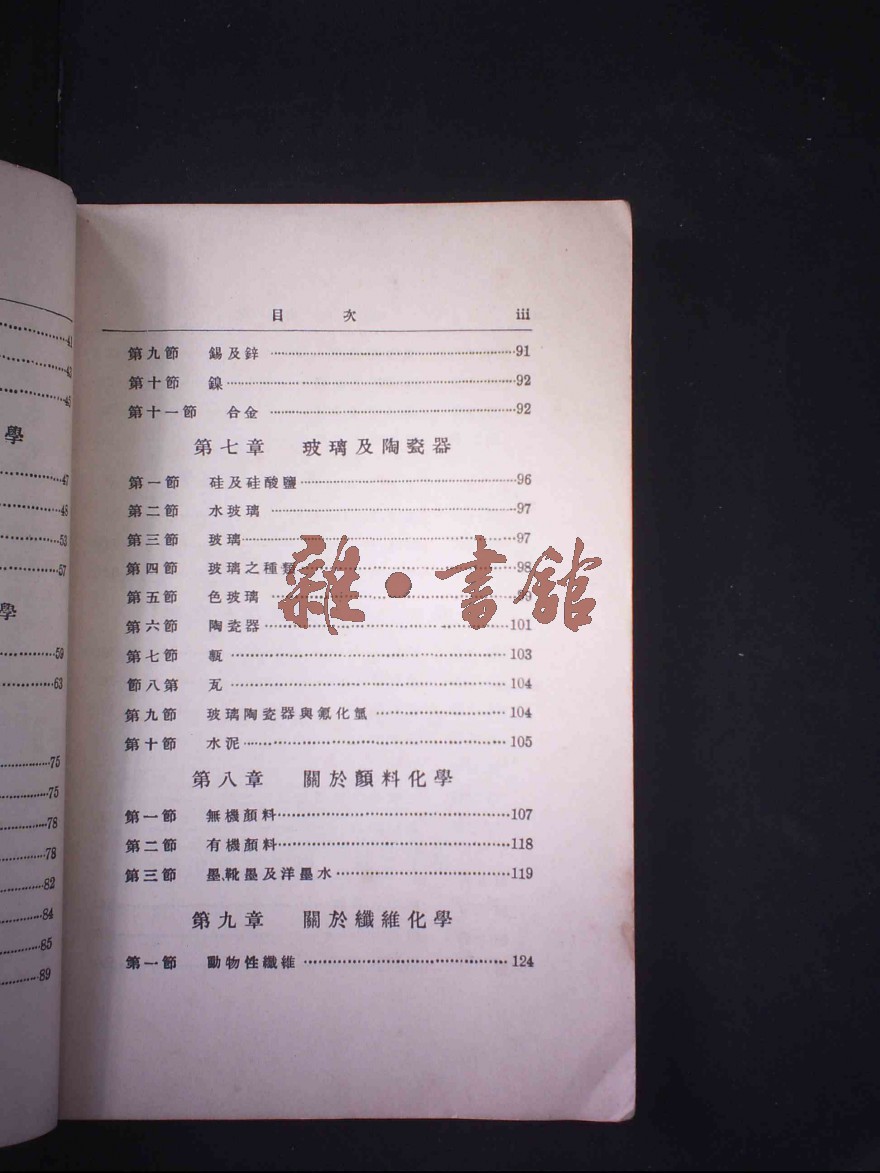 41
43
45
學
47
48
53
57
學
59
63
75
75
78
78
82
84
85
89
目 次 iii
第九節 錫及鋅 91
第十節 鎳 92
第十一節 合金 92
第七章 玻璃及陶瓷器
第一節 硅及硅酸鹽 96
第二節 水玻璃 97
第三節 玻璃 97
第四節 玻璃之種類 98
第五節 色玻璃 99
第六節 陶瓷器 101
第七節 瓶 103
節八第 瓦 104
第九節 玻璃陶瓷器與氟化氫 104
第十節 水泥 105
第八章 關於顏料化學
第一節 無機顏料 107
第二節 有機顏料 118
第三節 墨,靴墨及洋墨水 119
第九章 關於纖維化學
第一節 動物性纖維 124
雜·書館